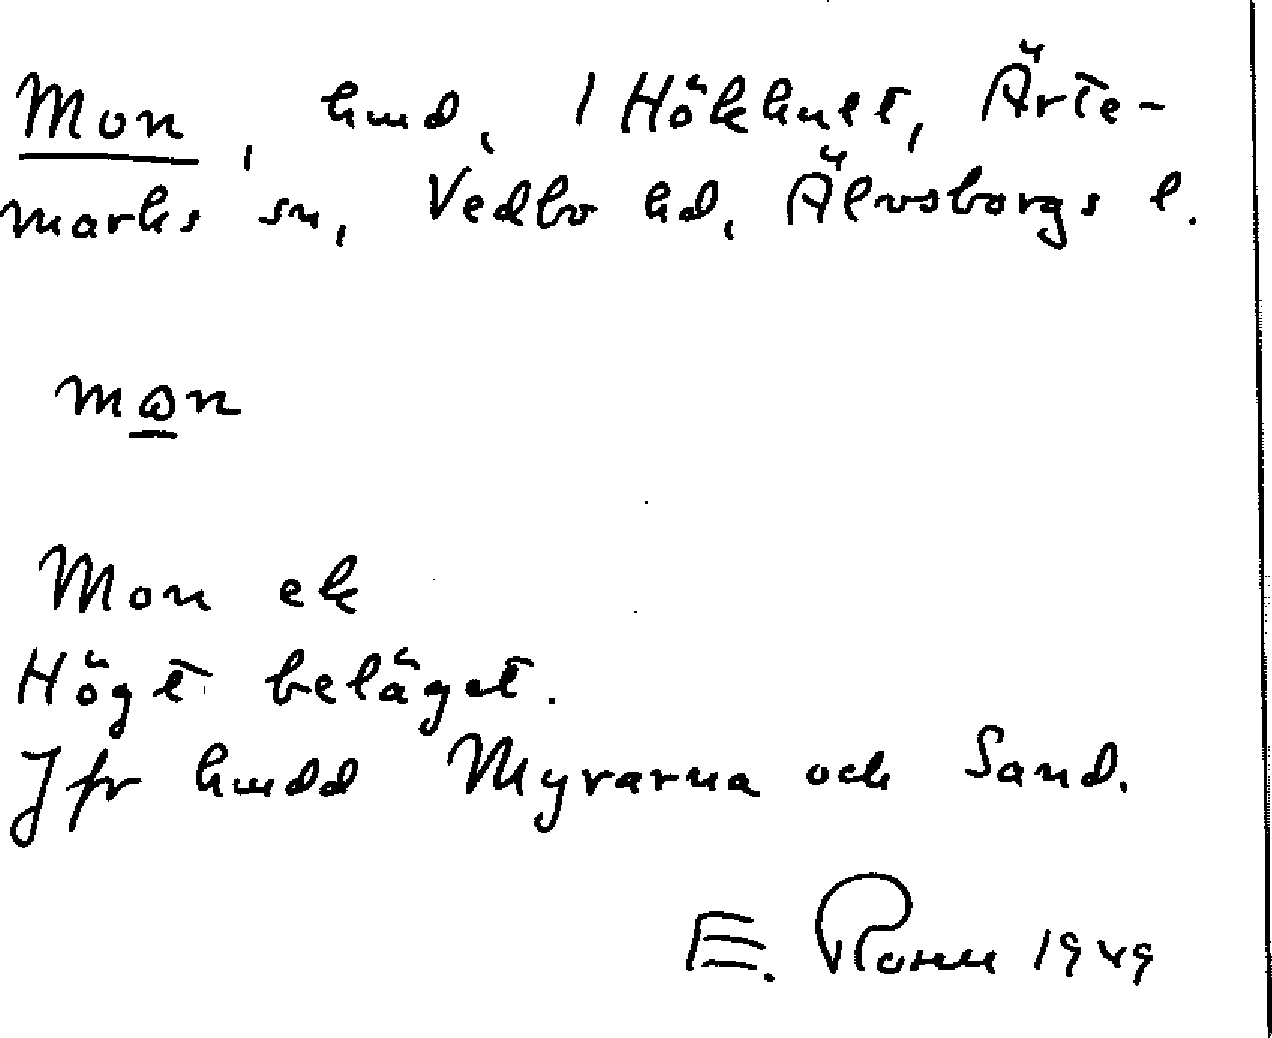 Mon, hmd, 1 Hökhult, Ärte-
marks sn, Vedbo hd, Älvsborgs l.
mon
Mon ek
Högt beläget.
Jfr hmdd Myrarna och Sand.
E. 1949